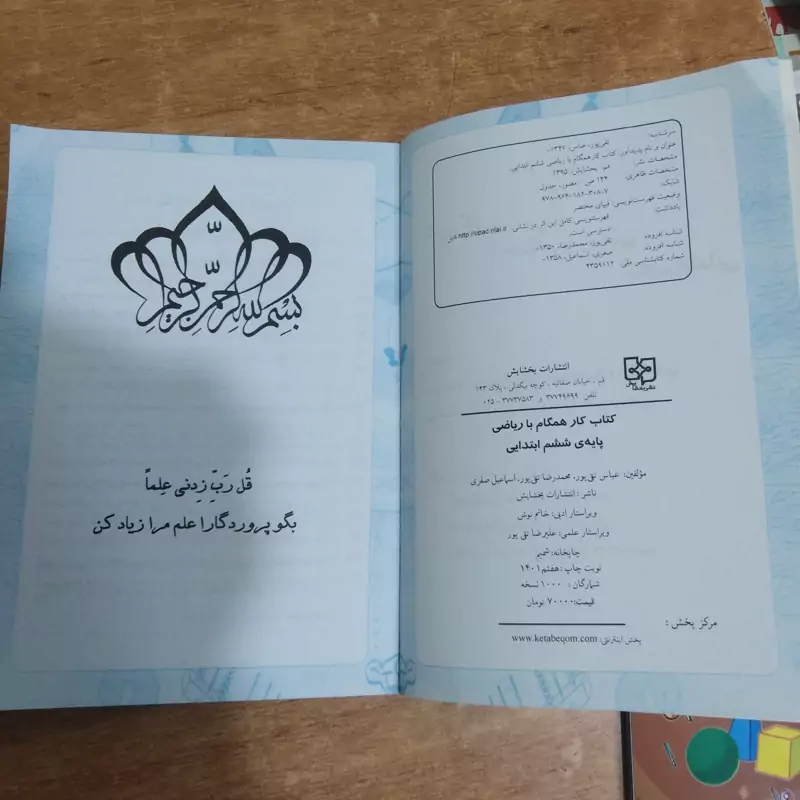 بسم الله الرحمن الرحیم
قُل رَبِّ زِدنی عِلماً
بگو پروردگارا علم مرا زیاد کن
سرشناسه: تقی‌پور، عباس، ۱۳۴۲-
عنوان و نام پدیدآور: کتاب کار همگام با ریاضی ششم ابتدایی.
مشخصات نشر: قم بخشایش، ۱۳۹۵
مشخصات ظاهری: ۱۴۴ ص مصور، جدول
شابک: ۹۷۸-۹۶۴-۱۸۲-۳۰۸-۷
وضعیت فهرست‌نویسی: فیپای مختصر
یادداشت: فهرستنویسی کامل این اثر در نشانی: http://opac.nlai.ir قابل
دسترسی است.
شناسه افزوده: تقی‌پور، محمدرضا، ۱۳۵۰-
شناسه افزوده: صفری، اسماعیل، ۱۳۵۸-
شماره کتابشناسی ملی: ۴۳۵۹۱۱۲
انتشارات بخشایش
قم ـ خیابان صفائیه ـ کوچه بیگدلی ـ پلاک ۱۴۳
تلفن ۳۷۷۴۹۶۹۹ و ۳۷۷۳۷۵۸۳ - ۰۲۵
کتاب کار همگام با ریاضی
پایه‌ی ششم ابتدایی
مؤلفین: عباس تقی‌پور، محمدرضا تقی‌پور، اسماعیل صفری
ناشر: انتشارات بخشایش
ویراستار ادبی: خانم نوش
ویراستار علمی: علیرضا تقی پور
چاپخانه: شمیم
نوبت چاپ: هفتم ۱۴۰۱
شمارگان: ۱۰۰۰ نسخه
قیمت: ۷۰۰۰۰ تومان
مرکز پخش:
پخش اینترنتی: www.ketabeqom.com